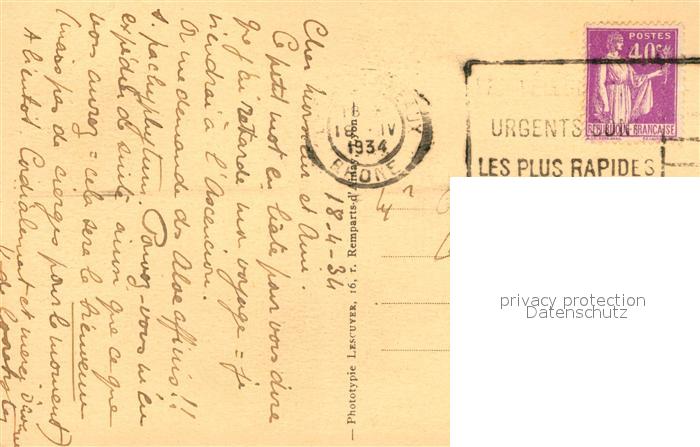 18-4-34
Cher Monsieur et Ami.
Ce petit mot en hâte pour vous dire
que j'ai retardé mon voyage = je
viendrai à l'Ascension.
On me demande des Aloe affinis !!
s. pachyphytum. Pouvez-vous m'en
expédier de suite ainsi que ce que
vous aurez = cela sera le bienvenu
(mais pas de cierges pour le moment)
A bientôt Cordialement et merci d'avance
— Phototypie LESCUYER, 16, r. Remparts-d'Ainay, Lyon —
18 IV
1934
RHONE
POSTES
40c
REPUBLIQUE FRANCAISE
URGENTS
LES PLUS RAPIDES
privacy protection
Datenschutz